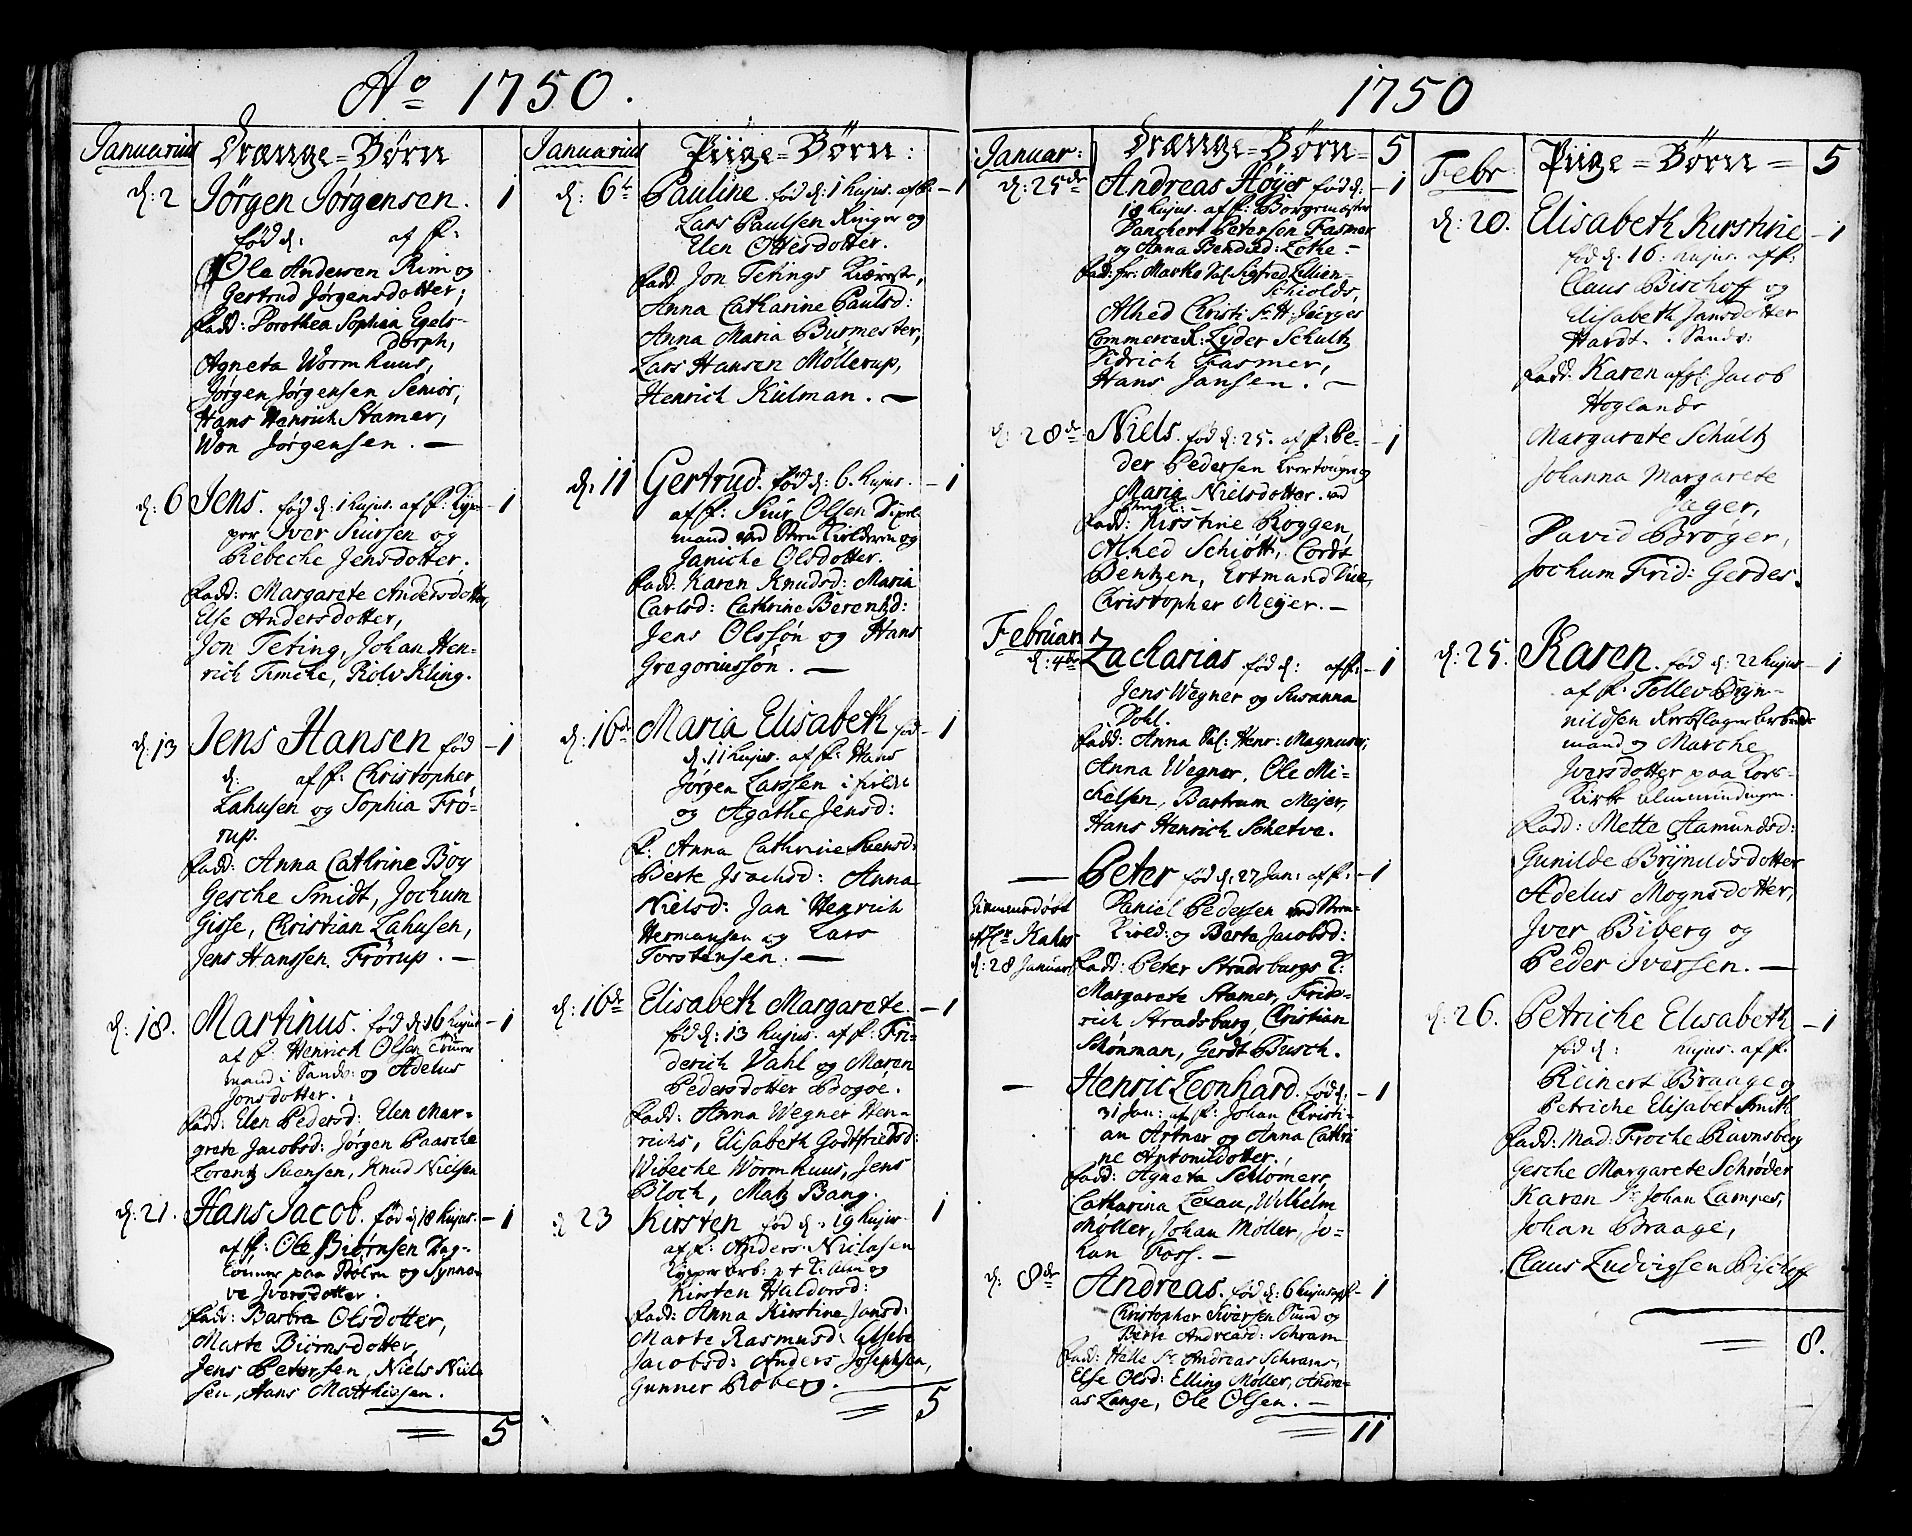 Ao 1750.
Januarius Drænge=Børn
d: 2 Jörgen Jörgensen. 1
föd d: af F:
Ole Andersen Rim og
Gertrud Jörgensdotter;
Fadd: Dorothea Sophia Egels-
dorph,
Agneta Wormhuus,
Jörgen Jörgensen Senior,
Hans Henrich Stamer,
Won Jörgensen. —
d: 6 Jens. föd d: 1 hujus. af F: Kyp- 1
per Iver Siursen og
Rebeche Jensdotter.
Fadd: Margarete Andersdotter,
Else Andersdotter,
Jon Teting, Johan Hen-
rich Timche, Rolv Kling.
d: 13 Jens Hansen föd -1
d: af F: Christopher
Lahusen og Sophia Frö-
rup.
Fadd: Anna Cathrine Boy
Gesche Smidt, Jochum
Gisse, Christian Lahusen,
Jens Hanssen Frörup. —
d: 18. Martinus. föd d: 16 hujus -1
af F: Henrich Olsen
mand i Sandv: og Adelus
Jonsdotter.
Fad: Elen Pedersd: Elen Mar-
grete Jacobsd: Jörgen Paasche
Lorentz Svensen, Knud Nielsen
d: 21. Hans Jacob. föd d: 18 hujus. -1
af F: Ole Biörnsen Dag-
lönner paa Nölen og Synno-
ve Iversdotter.
Fad: Barbra Olsdotter,
Marte Biörnsdotter,
Jens Petersen, Niels Niel-
sen, Hans Matthiesen.
5
Januarius Piige=Børn:
d: 6t Pauline. föd d: 1 hujus. af F: -1
Lars Paulsen Ringer og
Elen Ottesdotter.
Fadd: Jon Tetings Kiæreste,
Anna Catharine Paulsd:
Anna Maria Burmester,
Lars Hansen Möllerup,
Henrich Kulman. —
d. 11 Gertrud. föd d: 6. hujus. -1
af F: Siur Olsen
mand ved Steen Kielderen og
Janiche Olsdotter.
Fadd: Karen Knudsd: Maria
Carlsd: Cathrine Berentzd:
Jens Olssön og Hans
Gregoriussön. —
d: 16de Maria Elisabeth föd -1
d. 11 hujus. af F: Hans
Jörgen Larssen i
og Agathe Jensd:
F: Anna Cathrine Svensd:
Berte Isachsd: Anna
Nielsd: Jan Henrich
Hermansen og Lars
Torstensen. —
d: 16de Elisabeth Margarete. -1
föd d: 13 hujus. af F: Fri-
derich Vahl og Maren
Pedersdotter Bogöe.
Fadd: Anna Wegner Hen-
richs, Elisabeth Godtfriedsd:
Wibeche Wormhuus, Jens
Bloch, Matz Bang.
d: 23 Kirsten föd d. 19 hujus. 1
af F: Anders Nielssen
Kypper
Kirsten Haldorsd:
Fadd: Anna Kirstine Jansd:
Marte Rasmusd: Elsebe
Jacobsd: Anders Josephsen,
Gunner Roberg.
5
1750
Januar: Drænge=Børn= 5
d: 25de Andreas Höyer föd d: -1
18 hujus. af F: Borgemester
Danchert Petersen Fasmer
og Anna Bendixd: Lothe —
Fad: fr: Marke Sal: Sigfred Lillien-
schiolds,
Alhed Christi: Sr H: Jürges
CommerceR: Lyder Schultz
Didrich Fasmer,
Hans Jansen. —
d: 28de Niels. föd d: 25. af F: Pe- -1
der Pedersen og
Maria Nielsdotter. ved
Fadd: Kirstine Roggen,
Alhed Schiött, Cordt
Bentzen, Ertmand Vue,
Christopher Meyer. —
Februar:
d: 4de Zacharias. föd d: af F: -1
Jens Wegner og Susanna
Pohl.
Fadd: Anna Sal: Henr: Magnuses,
Anna Wegner, Ole Mi-
chelsen, Bartrum Mejer,
Hans Henrich Schetve.
— Peter föd d: 27 Jan: af F: -1
Hiemmedöbt Daniel Pedersen ved Steen-
af Hr Kahrs Kield: og Berte Jacobsd:
d: 28 Januar: Fadd: Peter Stradsburgs K:
Margarete Stamer, Frid-
rich Stradsburg, Christian
Schönman, Gerdt Busch.
— Henric Leonhard. föd d: -1
31 Jan: af F: Johan Christi-
an Artner og Anna Cathri-
ne Antonildotter.
Fadd: Agneta Schlömers,
Catharina Lexau, Wilhelm
Möller, Johan Möller, Jo-
han Foss. —
d: 8de Andreas. föd d: 6 hujus af F: -1
Christopher Siversen Tund og
Berte Andreasd: Schram
Fadd: Helle Sr Andreas Schrams,
Else Olsd: Elling Möller, Andre-
as Lange, Ole Olsen. —
11
Febr: Piige=Børn= 5
d: 20. Elisabeth Kirstine -1
föd d. 16. hujus. af F:
Claus Bischoff og
Elisabeth Jansdotter
Hardt. Sandv:
Fadd: Karen afgl: Jacob
Hoglands
Margarete Schultz
Johanna Margarete
Jæger,
David Bröger,
Jochum Frid: Gerdes.
d: 25. Karen. föd d: 22 hujus -1
af F. Tollev Bryn-
nildsen Reebslager Arbeids-
mand og Marche
Iversdotter paa Kors-
Kirke Almindingen.
Fadd: Mette Aamundsd:
Gunilde Brynildsdotter
Adelus Mognsdotter,
Iver Biberg og
Peder Iversen. —
d: 26. Petriche Elisabeth -1
föd d: hujus. af F.
Reinert Braage og
Petriche Elisabet Smith
Fadd: Mad: Froche Ravnsberg
Gesche Margarete Schröder
Karen Sr Johan Lampes,
Johan Braage,
Claus Ludvigsen Bischoff
8.